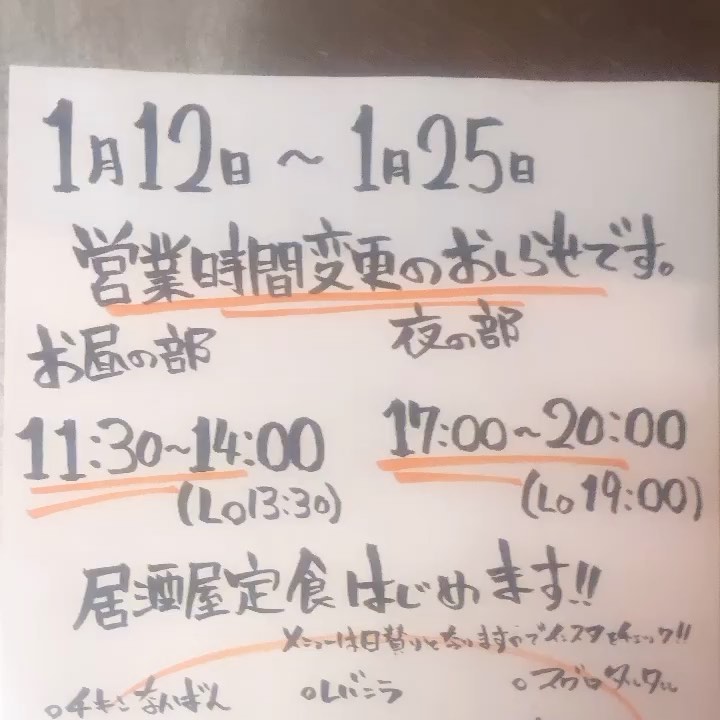 1月12日～1月25日
営業時間変更のおしらせです。
お昼の部
夜の部
11:30～14:00
17:00～20:00
(Lo13:30)
(Lo 19:00)
居酒屋定食はじめます!!
メニューは日替りとなりますのでインスタをチェック!!
○チキンなんばん
○レバニラ
○マグロタルタル